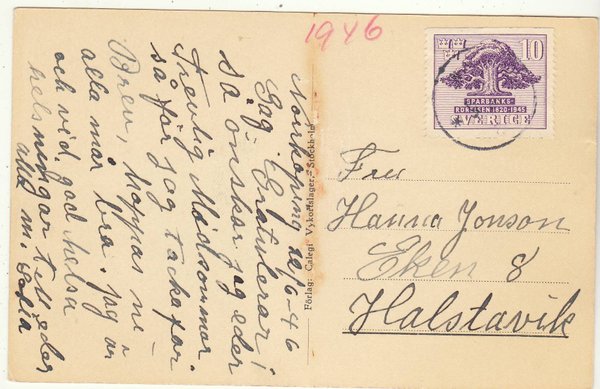 1946
Norrköping 20/6-46
Säg Gratulerar!
Så önskar jag eder
Trevlig Midsommar.
så får jag tacka för
Brev, hoppas ni
alla mår bra. jag är
och vid god helsa
helsningar till eder
alla m.
Förlag: Calegi Vykortslager, Stockholm
10
SPARBANKS-
RÖRELSEN 1820-1945
SVERIGE
Fru
Hanna Jonson
Eken 8
Halstavik